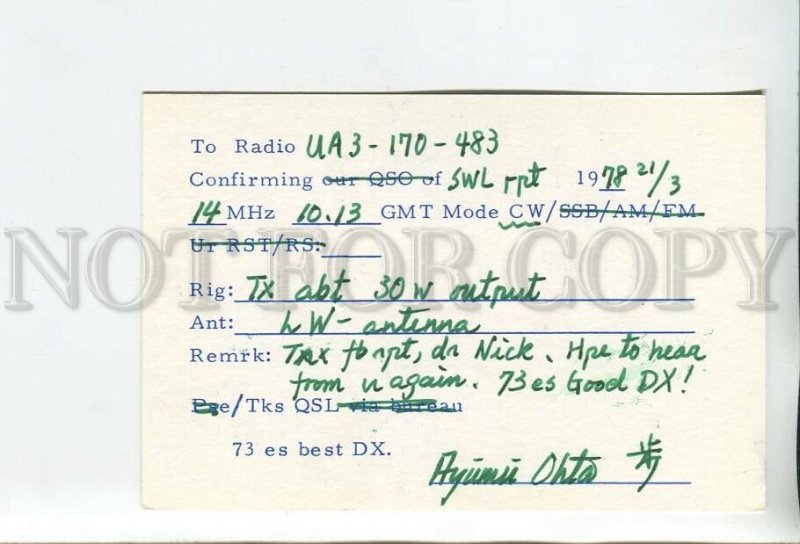 To Radio UA3-170-483
Confirming our QSO of SWL rpt 1978 21/3
14 MHz 10.13 GMT Mode CW/SSB/AM/FM
Ur RST/RS:
Rig: TX abt 30w output
Ant: LW-antenna
Remrk: Tnx fb rpt, dr Nick. Hpe to hear
from u again. 73 es Good DX!
Pse/Tks QSL via bureau
73 es best DX.
Ayumu Ohta 歩
NOT FOR COPY